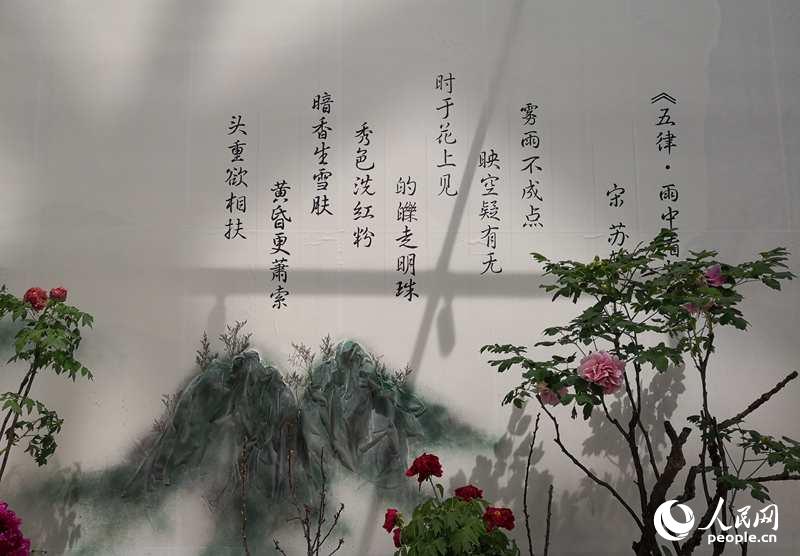 《五律·雨中看
宋 苏
雾雨不成点
映空疑有无
时于花上见
的皪走明珠
秀色洗红粉
暗香生雪肤
黄昏更萧索
头重欲相扶
人民网
people.cn